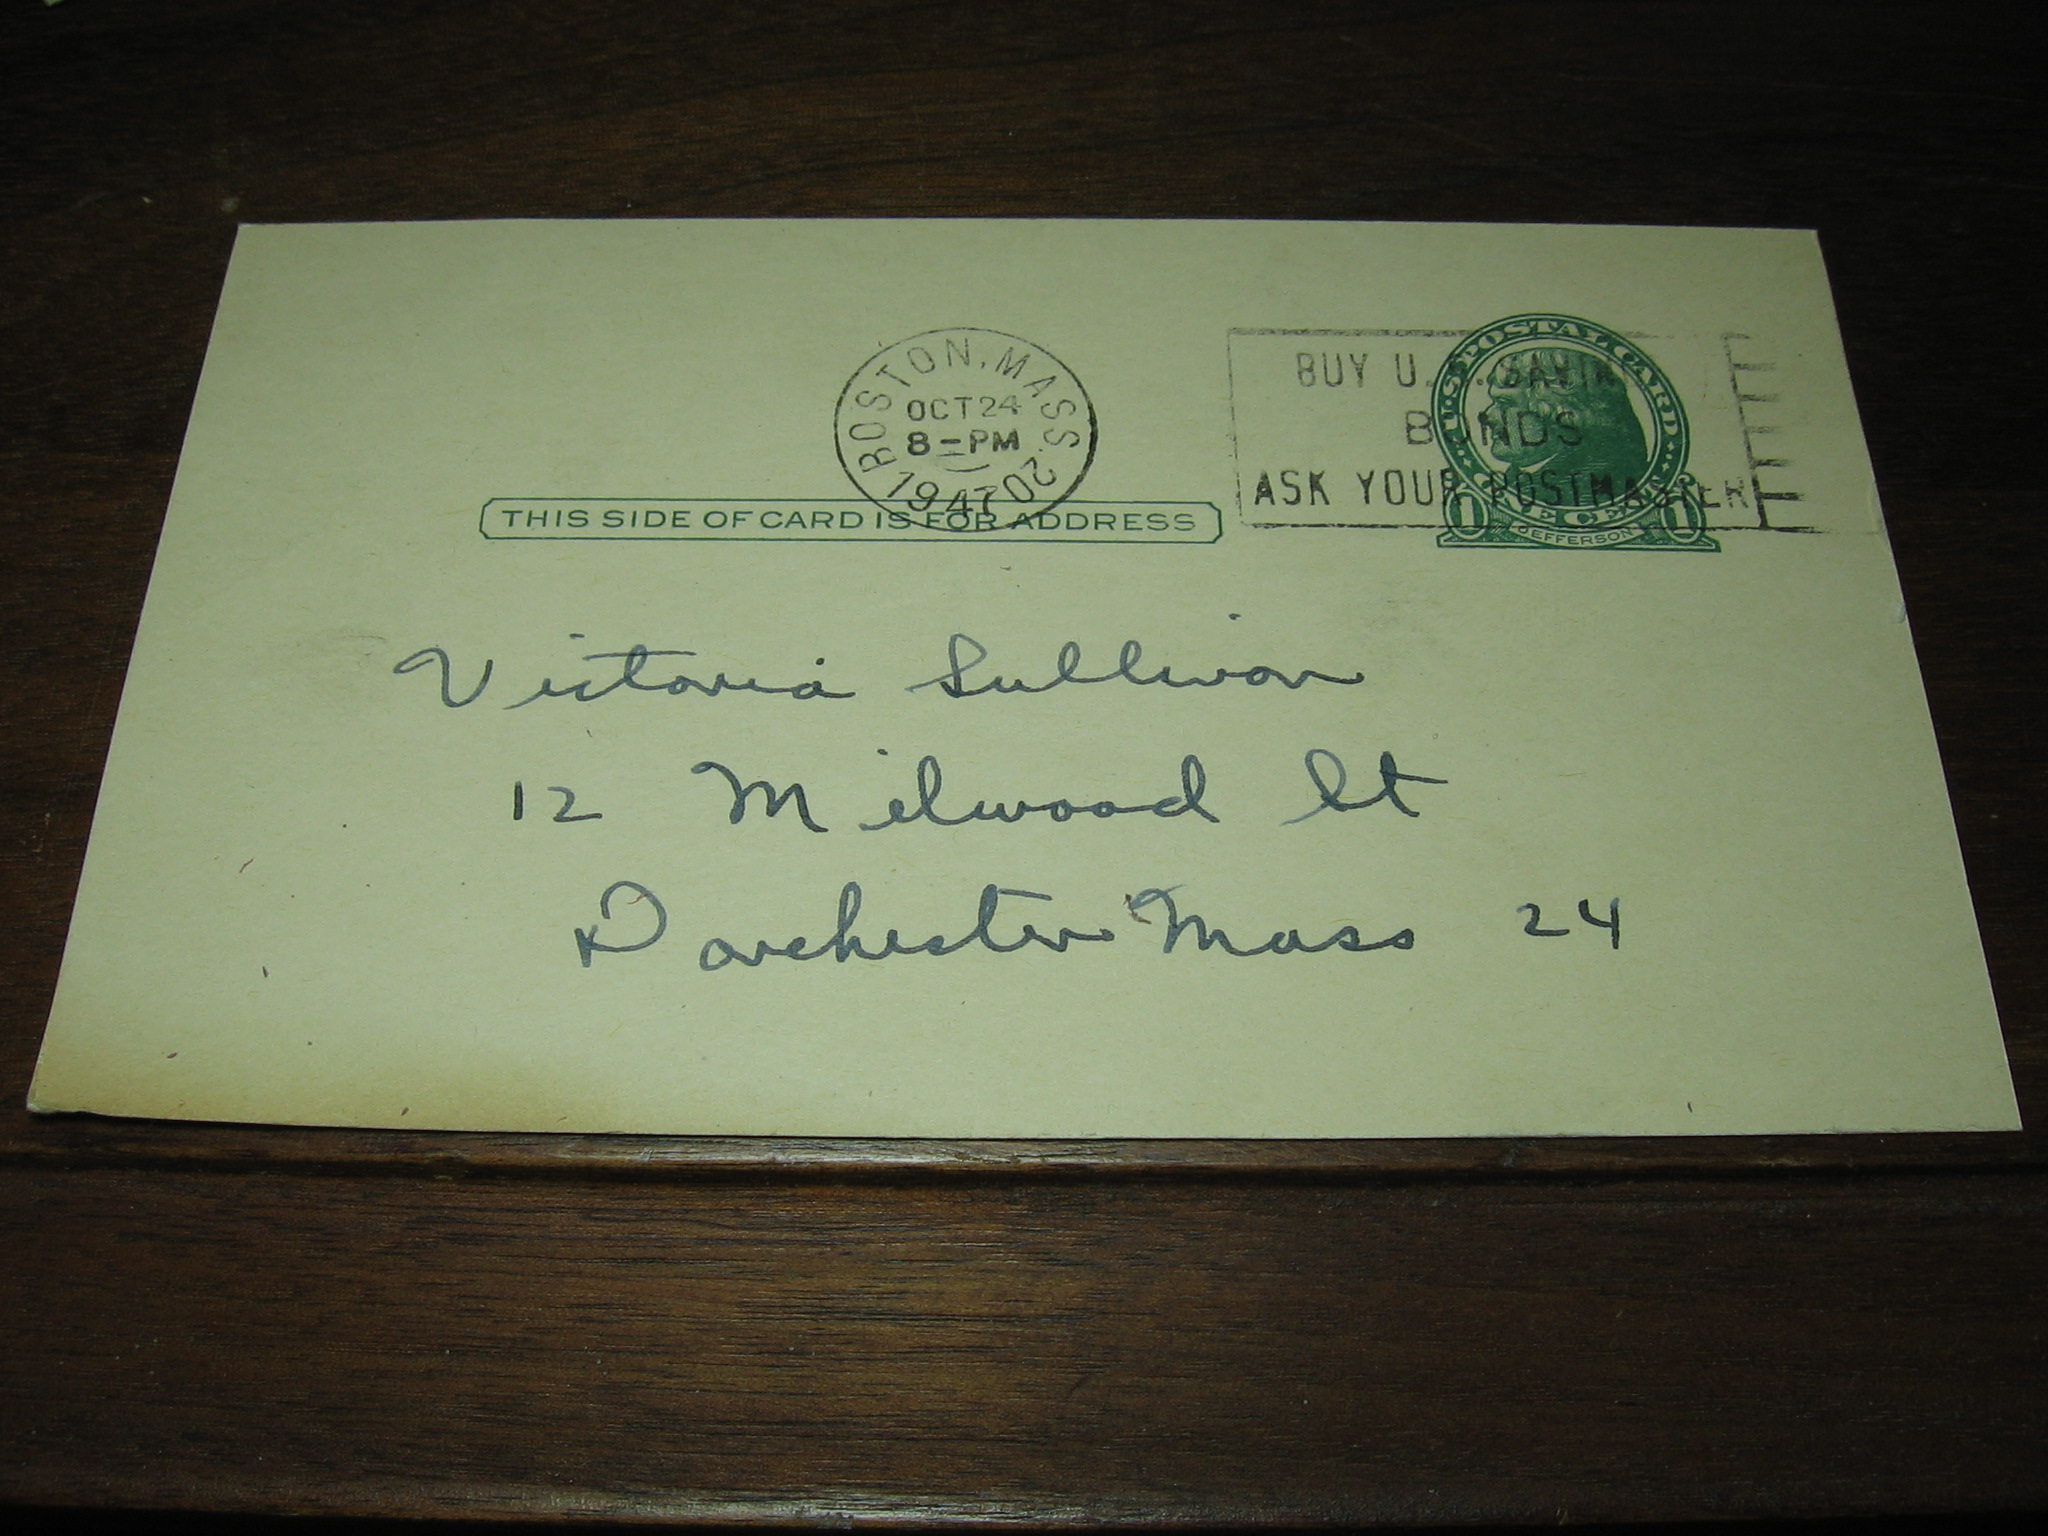 BOSTON, MASS. 20
OCT 24
8-PM
1947
BUY U. S. SAVINGS
BONDS
ASK YOUR POSTMASTER
U·S·POSTAL CARD
ONE CENT
1 1
JEFFERSON
THIS SIDE OF CARD IS FOR ADDRESS
Victoria Sullivan
12 Milwood St
Dorchester Mass 24